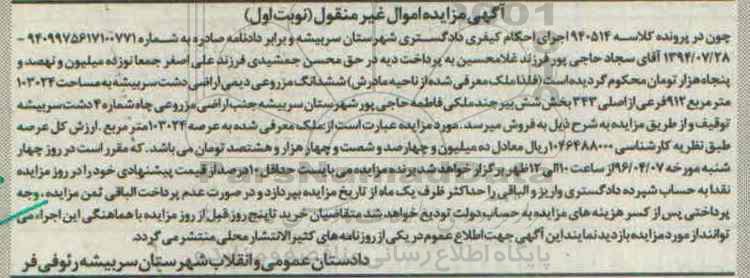 آگهی مزایده اموال غیر منقول (نوبت اول)
چون در پرونده کلاسه ۹۴۰۵۱۴ اجرای احکام کیفری دادگستری شهرستان سربیشه و برابر دادنامه صادره به شماره ۹۴۰۹۹۷۵۶۱۷۱۰۰۷۷۱ –
۱۳۹۴/۰۷/۲۸ آقای سجاد حاجی پور فرزند غلامحسین به پرداخت دیه در حق محسن جمشیدی فرزند علی اصغر جمعا نوزده میلیون و نهصد و
پنجاه هزار تومان محکوم گردیده است (فلذا ملک معرفی شده از ناحیه مادرش) ششدانگ مزروعی دیمی اراضی دشت سربیشه به مساحت ۱۰۳۰۲۴
متر مربع ۹۱۲ فرعی از اصلی ۳۴۳ بخش شش بیرجند ملکی فاطمه حاجی پور شهرستان سربیشه جنب اراضی مزروعی چاه شماره ۴ دشت سربیشه
توقیف و از طریق مزایده به شرح ذیل به فروش میرسد. مورد مزایده عبارت است از: ملک معرفی شده به عرصه ۱۰۳۰۲۴ متر مربع. ارزش کل عرصه
طبق نظریه کارشناسی ۱۰۴۶۴۸۸۰۰۰ ریال معادل ده میلیون و چهارصد و شصت و چهار هزار و هشتصد تومان می باشد. که مقرر است در روز چهار
شنبه مورخه ۹۶/۰۴/۰۷ از ساعت ۱۰ الی ۱۲ ظهر برگزار خواهد شد برنده مزایده می بایست حداقل ۱۰ درصد از قیمت پیشنهادی خود را در روز مزایده
نقدا به حساب سپرده دادگستری واریز و الباقی را حداکثر ظرف یک ماه از تاریخ مزایده بپردازد و در صورت عدم پرداخت الباقی ثمن مزایده، وجه
پرداختی پس از کسر هزینه های مزایده به حساب دولت تودیع خواهد شد متقاضیان خرید تا پنج روز قبل از روز مزایده با هماهنگی این اجراء می
توانند از مورد مزایده بازدید نمایند این آگهی جهت اطلاع عموم در یکی از روزنامه های کثیرالانتشار محلی منتشر می گردد.
دادستان عمومی و انقلاب شهرستان سربیشه رئوفی فر
پایگاه اطلاع رسانی